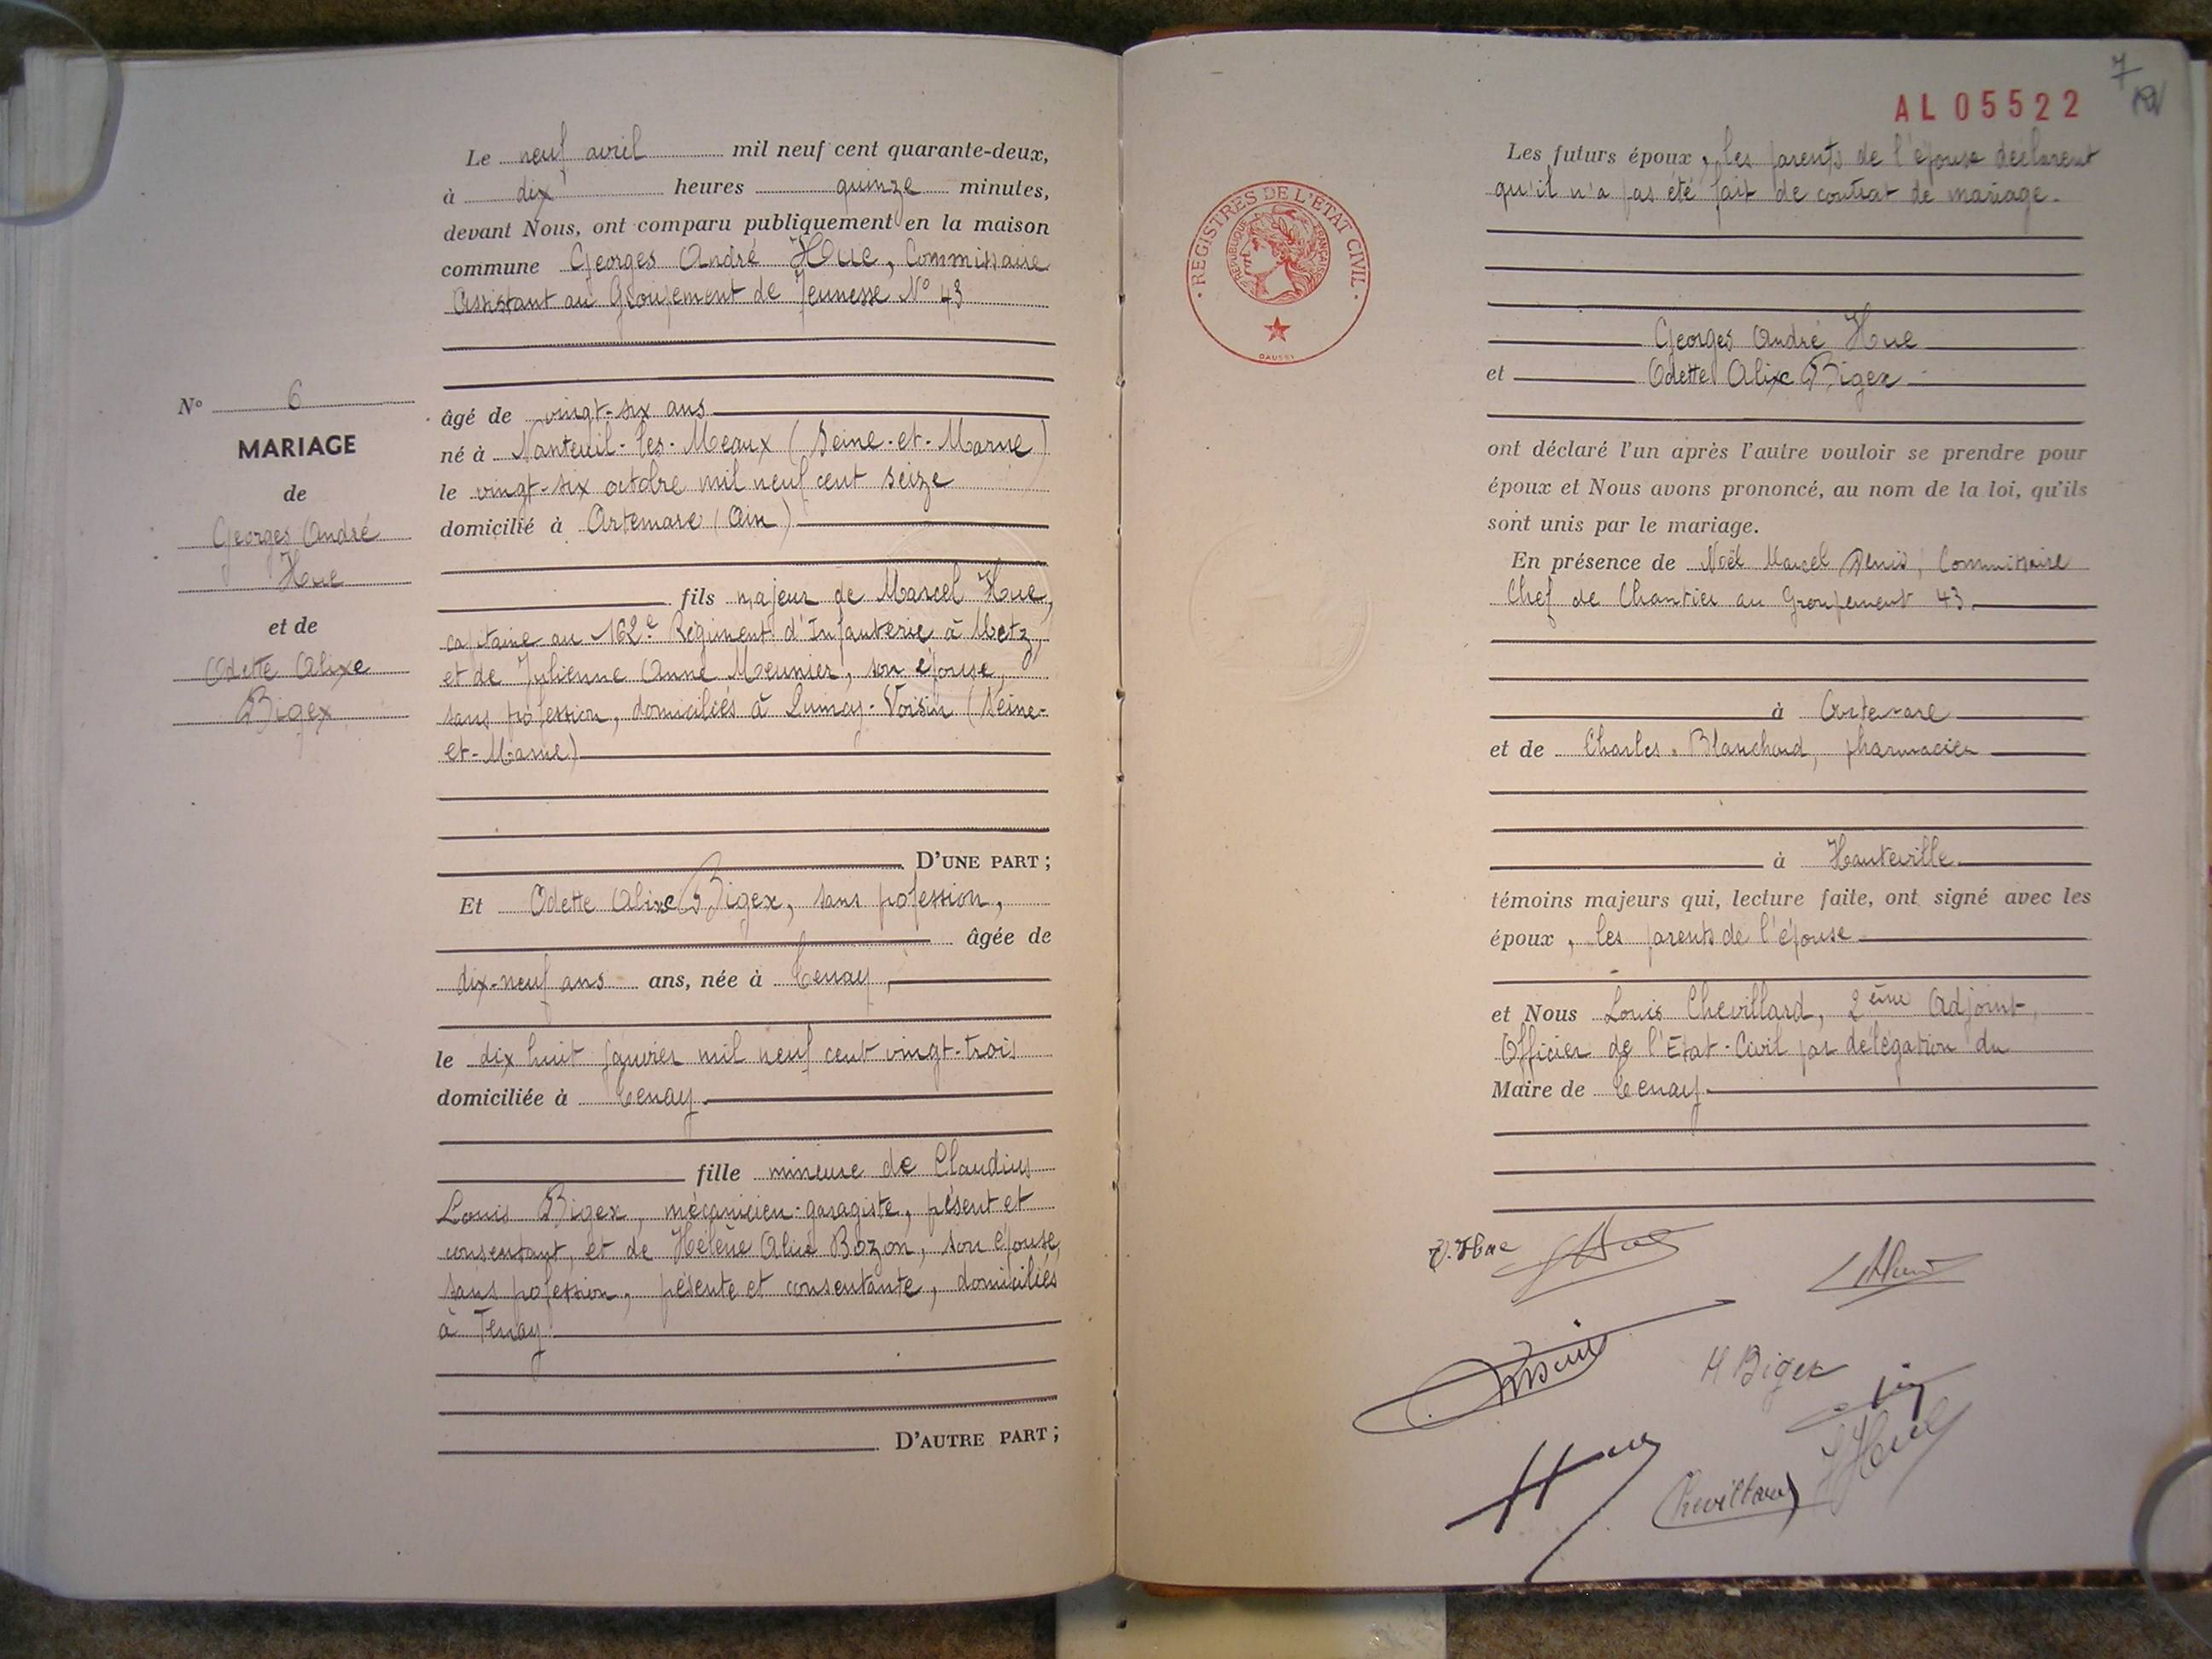 Le neuf avril mil neuf cent quarante-deux,
à dix heures quinze minutes,
devant Nous, ont comparu publiquement en la maison
commune Georges André Hue, Commissaire
Assistant au Groupement de Jeunesse N° 43
N° 6
MARIAGE
de
Georges André
Hue
et de
Odette Alixe
Bigex
âgé de vingt-six ans
né à Nanteuil-les-Meaux (Seine-et-Marne)
le vingt-six octobre mil neuf cent seize
domicilié à Artemare (Ain)
fils majeur de Marcel Hue,
capitaine au 162e Régiment d'Infanterie à Metz,
et de Julienne Anne Meunier, son épouse,
sans profession, domiciliés à Voisin (Seine-
et-Marne)
D'UNE PART ;
Et Odette Alixe Bigex, sans profession,
âgée de
dix-neuf ans ans, née à Tenay,
le dix huit janvier mil neuf cent vingt-trois
domiciliée à Tenay
fille mineure de Claudius
Louis Bigex, mécanicien-garagiste, présent et
consentant, et de Hélène Bozon, son épouse,
sans profession, présente et consentante, domiciliés
à Tenay
D'AUTRE PART ;
7
AL 05522
REGISTRES DE L'ETAT CIVIL
REPUBLIQUE FRANÇAISE
Les futurs époux, les parents de l'épouse déclarent
qu'il n'a pas été fait de contrat de mariage.
Georges André Hue
et Odette Alixe Bigex
ont déclaré l'un après l'autre vouloir se prendre pour
époux et Nous avons prononcé, au nom de la loi, qu'ils
sont unis par le mariage.
En présence de Noël Marcel Denis, Commissaire
Chef de Chantier au Groupement 43
à Artemare
et de Charles Blanchard, pharmacien
à Hauteville
témoins majeurs qui, lecture faite, ont signé avec les
époux, les parents de l'épouse
et Nous Louis Chevillard, 2ème Adjoint,
Officier de l'Etat-Civil par délégation du
Maire de Tenay
Hue
H Bigex
Chevillard